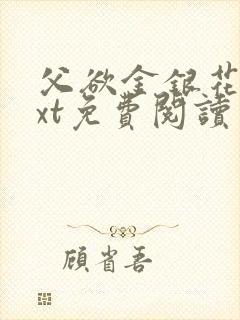 父欲金銀花
xt免費閱讀
顧省吾